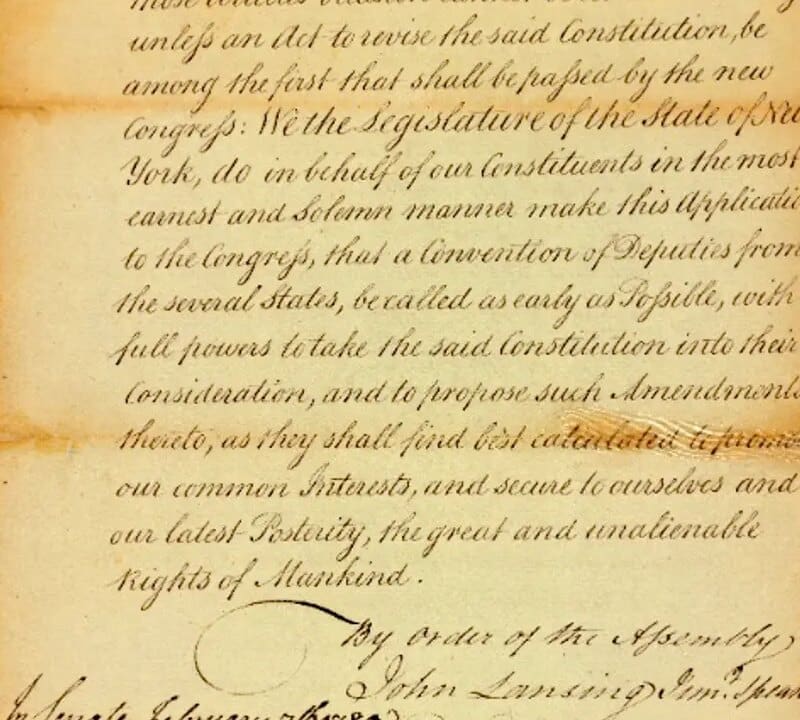 unleſs an Act to revise the said Constitution, be
among the first that shall be paſsed by the new
Congreſs: We the Legislature of the State of New
York, do in behalf of our Constituents in the most
earnest and Solemn manner make this Applicatio
to the Congreſs, that a Convention of Deputies from
the several States, be called as early as Poſsible, with
full powers to take the said Constitution into their
Consideration, and to propose such Amendments
thereto, as they shall find best calculated to promo
our common Interests, and secure to ourselves and
our latest Posterity, the great and unalienable
Rights of Mankind.
By Order of the Aſsembly
John Lansing Junr. Speak
In Senate February